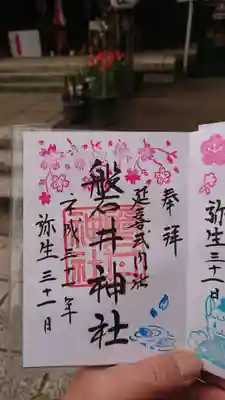 奉拝
延喜式内社
磐井神社
平成三十一年
弥生三十一日
弥生三十一日